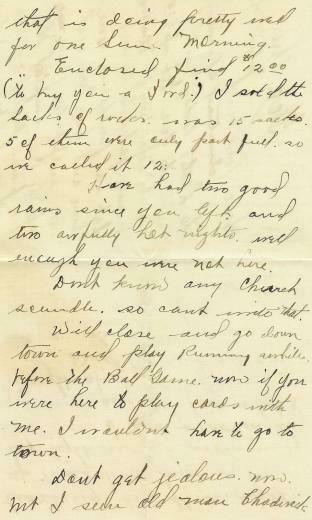 that is doing pretty well
for one Sun. Morning.
Enclosed find $12.00
("to buy you a Ford.") I sold the
sacks of rocks. was 15 sacks.
5 of them were only part full. so
we called it 12.
Have had two good
rains since you left. and
two awfully hot nights. well
enough you were not here.
Dont know any Church
scandle. so cant write that.
Will close and go down
town and play Rummy awhile.
before the Ball Game. now if you
were here to play cards with
me. I wouldnt have to go to
town.
Dont get jealous. now.
but I seen old man